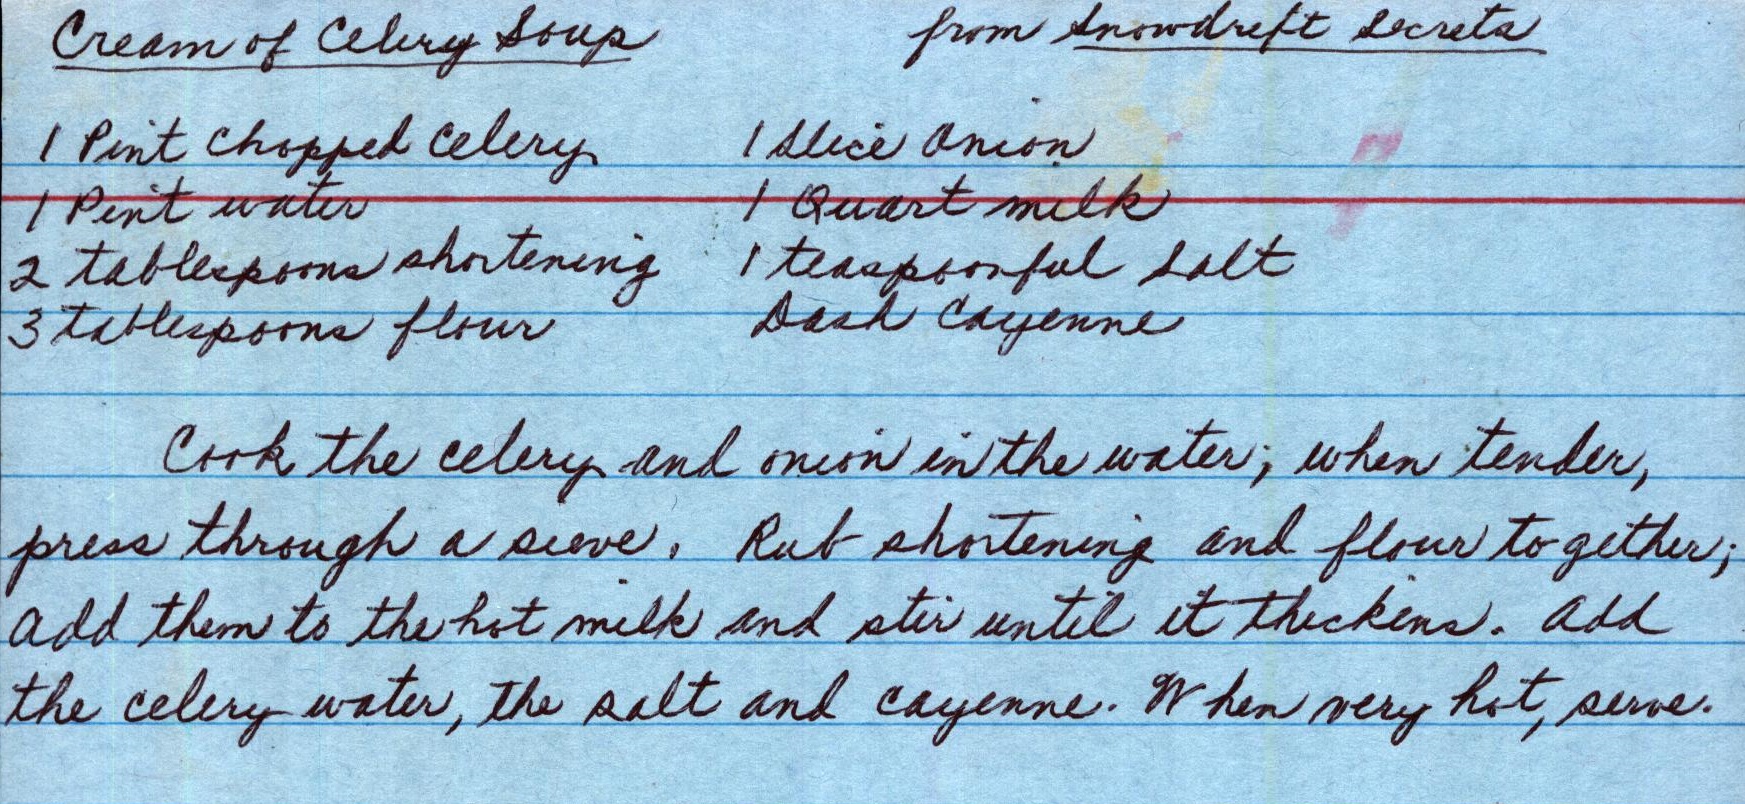 Cream of Celery Soup from Snowdrift Secrets
1 Pint chopped celery 1 slice onion
1 Pint water 1 Quart milk
2 tablespoons shortening 1 teaspoonful salt
3 tablespoons flour Dash Cayenne
Cook the celery and onion in the water; when tender,
press through a sieve. Rub shortening and flour together;
add them to the hot milk and stir until it thickens. Add
the celery water, the salt and cayenne. When very hot, serve.